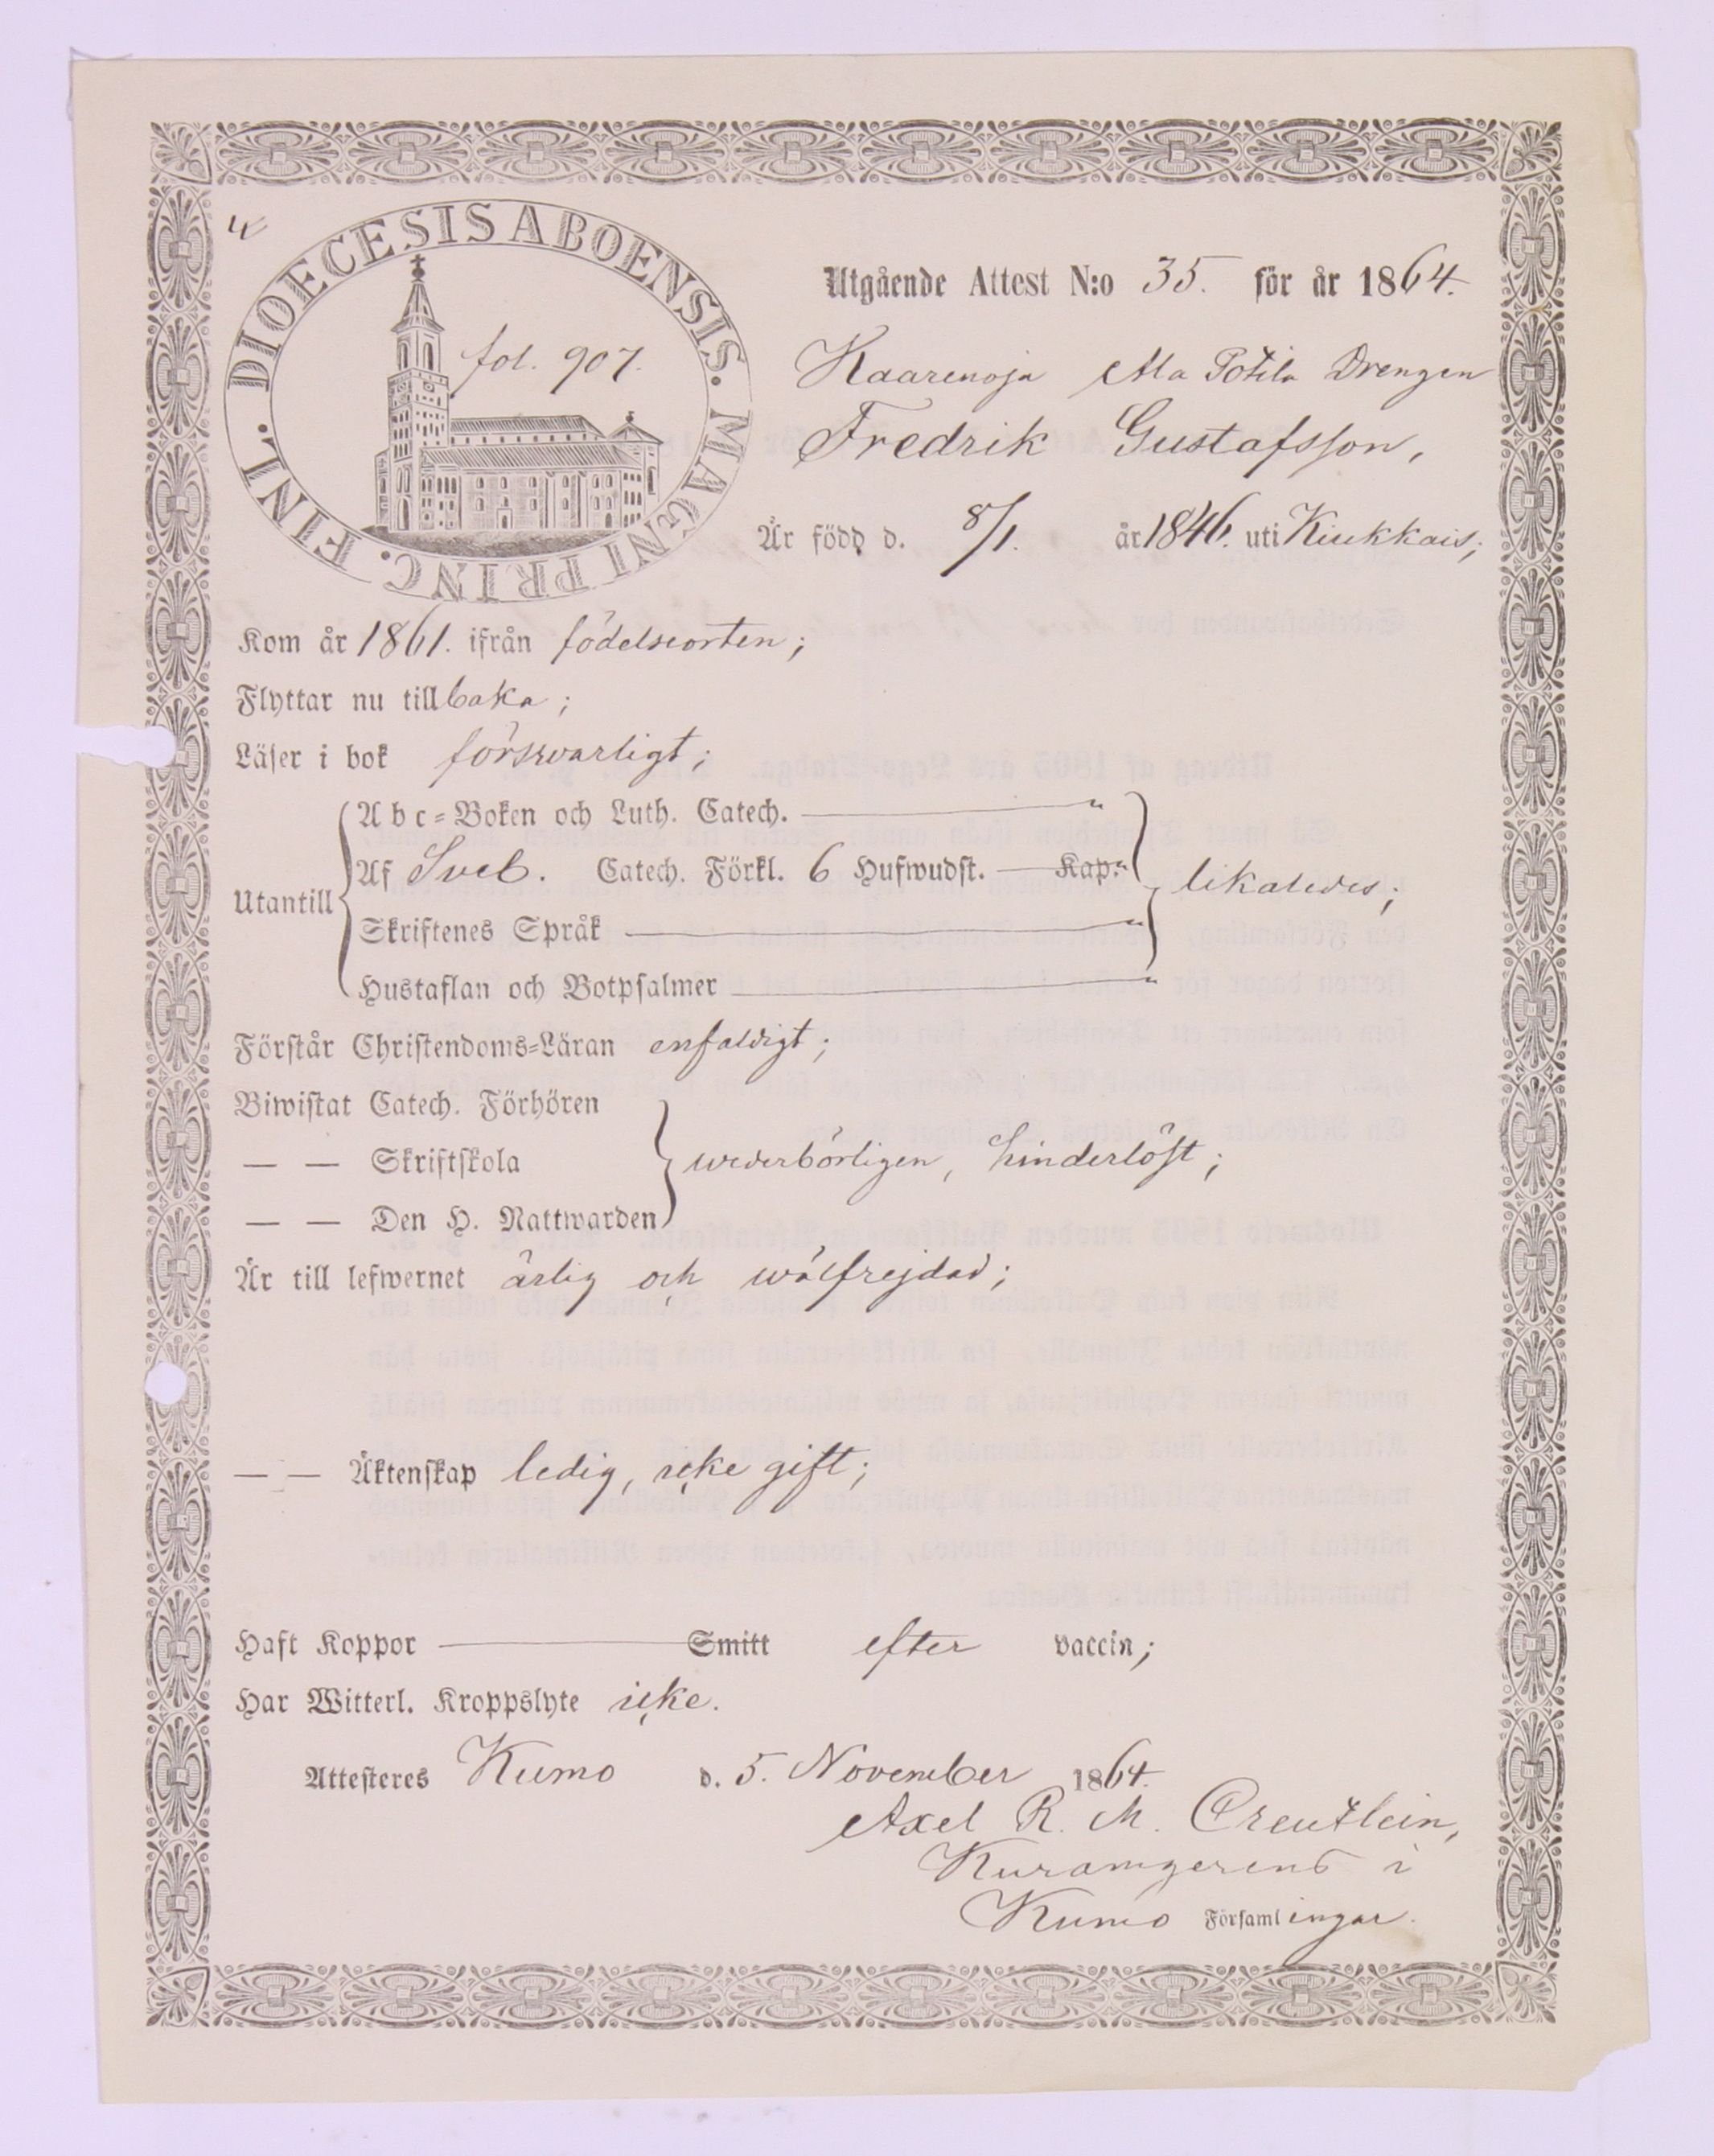 DIOECESIS ABOENSIS. MAGNI PRINC. FINL.
fol. 907.
Utgående Attest N:o 35. för år 1864.
Kaarenoja Ala Potila Drengen
Fredrik Gustafsson,
Är född d. 8/1. år 1846. uti Kiukkais;
Kom år 1861. ifrån födelseorten;
Flyttar nu tillbaka;
Läser i bok försvarligt;
Utantill
Abc-Boken och Luth. Catech. — "
Af Sveb. Catech. Förkl. 6 Hufwudst. — Kap. "
Skriftenes Språk — "
Hustaflan och Botpsalmer — "
likaledes;
Förstår Christendoms-Läran enfaldigt;
Biwistat Catech. Förhören
— — Skriftskola
— — Den H. Nattwarden
wederbörligen, hinderlöst;
Är till lefwernet ärlig och wälfrejdad;
— — Äktenskap ledig, icke gift;
Haft Koppor — Smitt efter vaccin;
Har Witterl. Kroppslyte icke.
Attesteras Kumo d. 5. November 1864.
Axel R. M. Creutlein,
i
Kumo Församlingar.